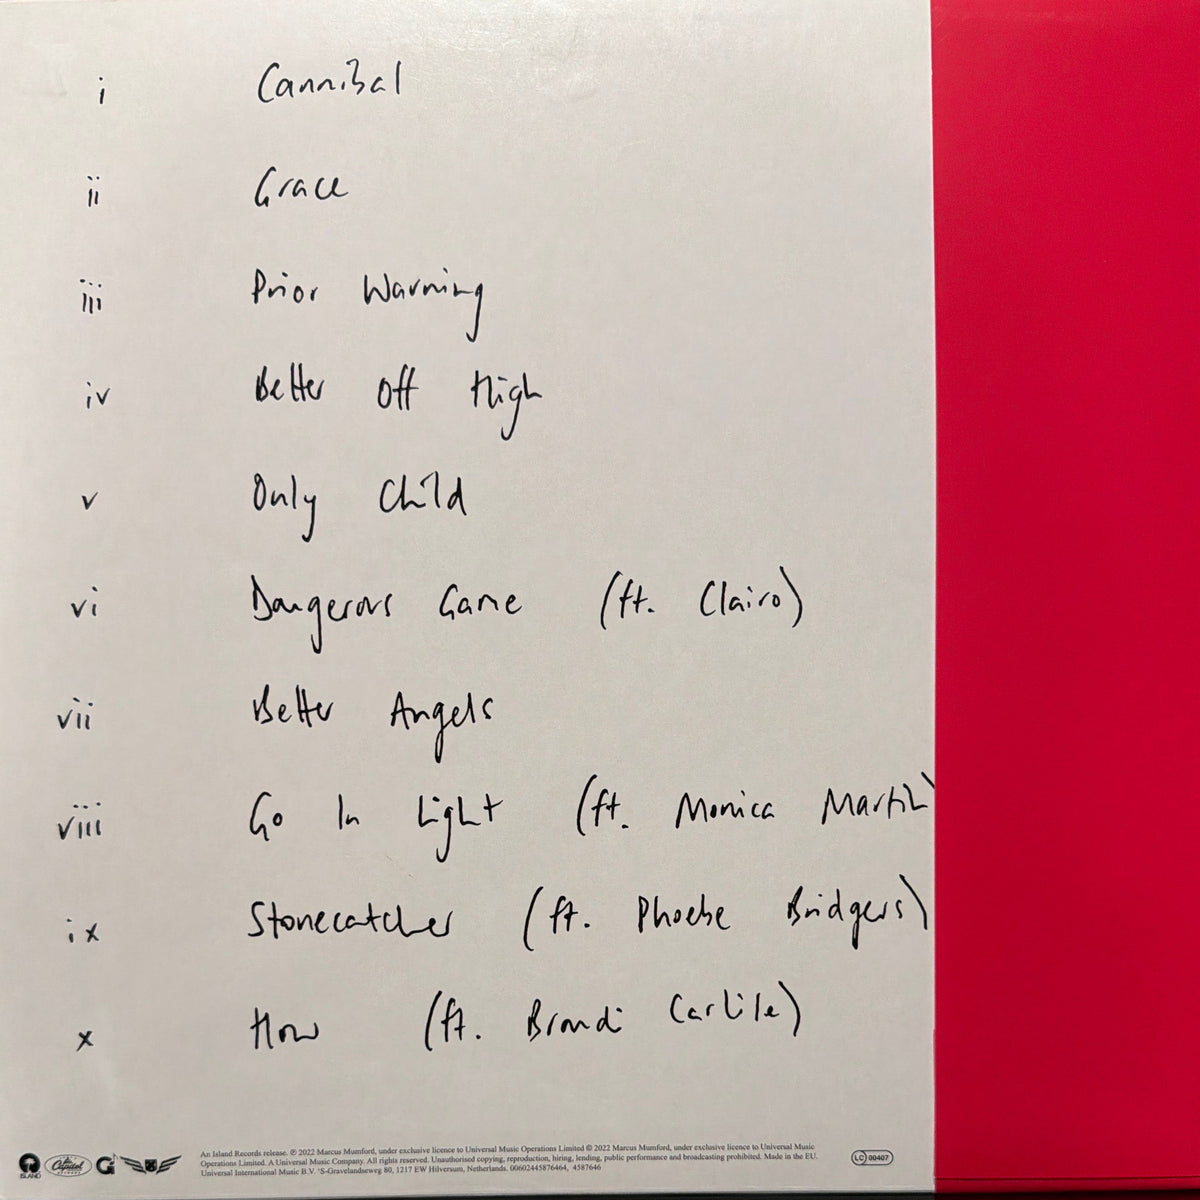 i Cannibal
ii Grace
iii Prior Warning
iv Better Off High
v Only Child
vi Dangerous Game (ft. Clairo)
vii Better Angels
viii Go In Light (ft. Monica Martin)
ix Stonecatcher (ft. Phoebe Bridgers)
x How (ft. Brandi Carlile)
An Island Records release. ℗ 2022 Marcus Mumford, under exclusive licence to Universal Music Operations Limited © 2022 Marcus Mumford, under exclusive licence to Universal Music
Operations Limited. A Universal Music Company. All rights reserved. Unauthorised copying, reproduction, hiring, lending, public performance and broadcasting prohibited. Made in the EU.
Universal International Music B.V. 'S-Gravelandseweg 80, 1217 EW Hilversum, Netherlands. 00602445876464, 4587646
ISLAND
Capitol
RECORDS
G
LC 00407